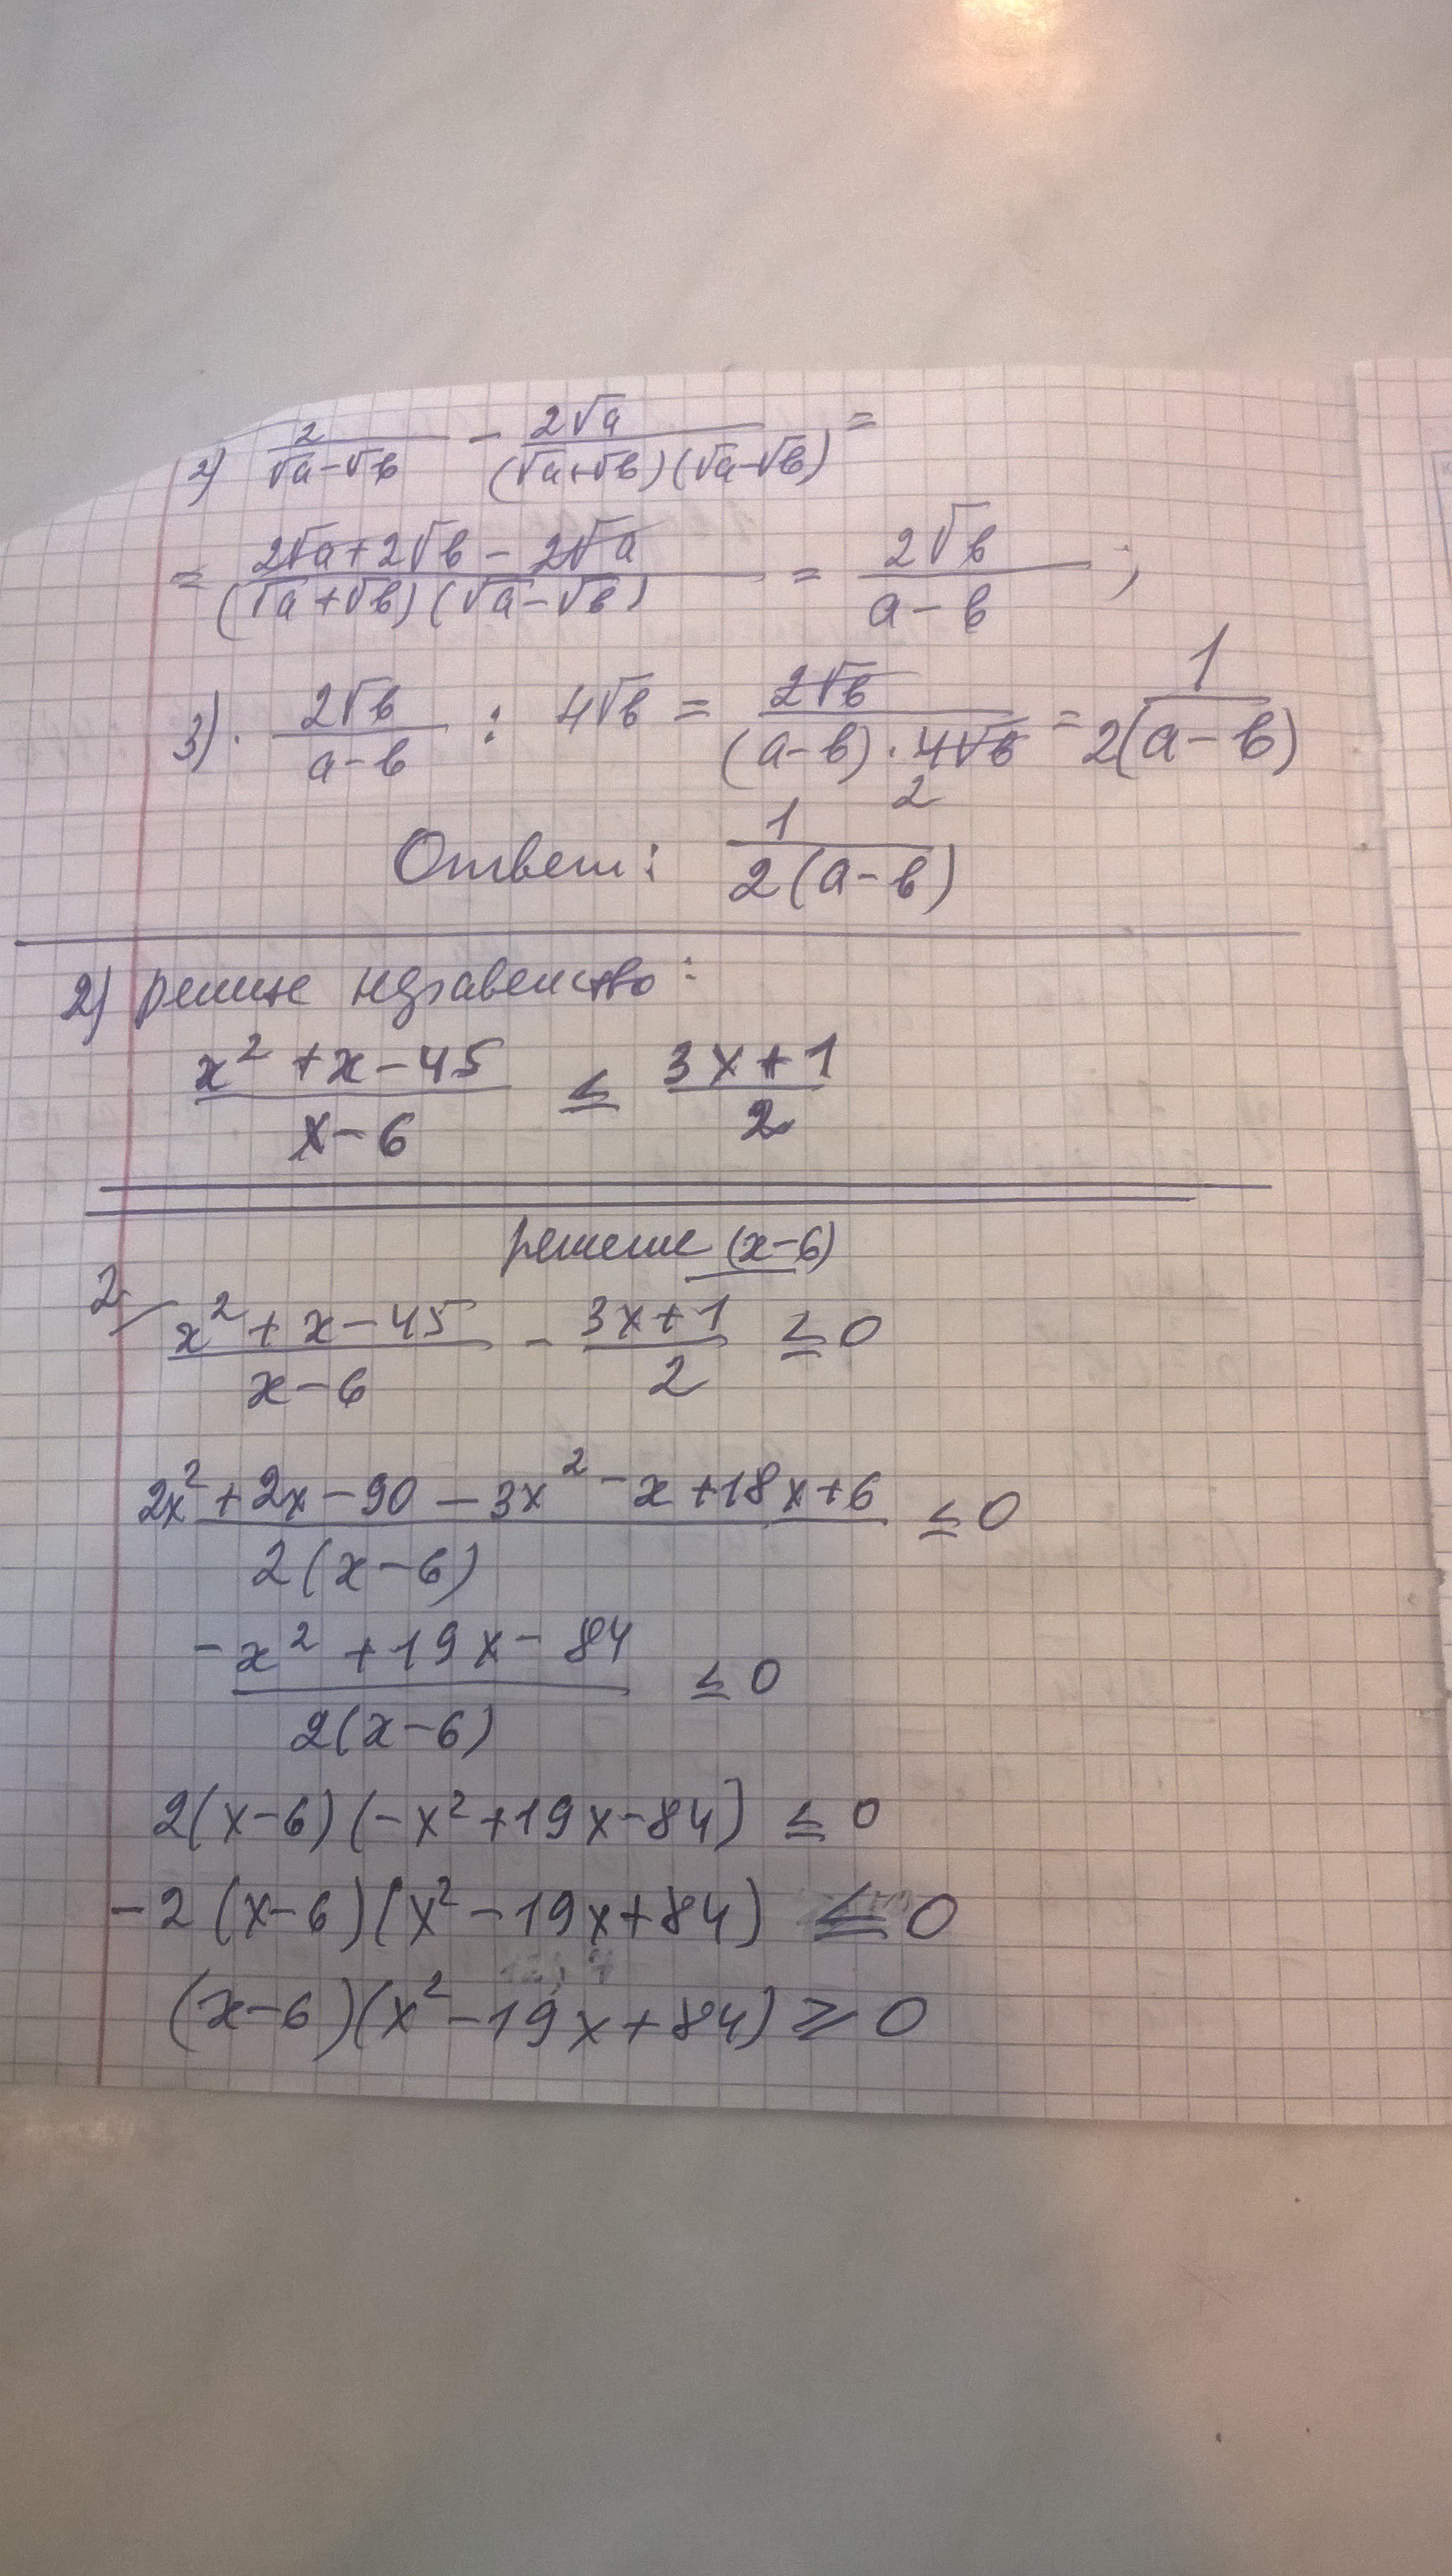 2) 2/(√a-√в) - 2√a/((√a+√в)(√a-√в)) =
= (2√a+2√в-2√a)/((√a+√в)(√a-√в)) = 2√в/(a-в) ;
3). 2√в/(a-в) : 4√в = 2√в/((a-в)·4√в) = 1/(2(a-в))
2
Ответ: 1/(2(a-в))
2) решите неравенство:
(x²+x-45)/(x-6) ≤ (3x+1)/2
решение (x-6)
2/ (x²+x-45)/(x-6) - (3x+1)/2 ≤ 0
(2x²+2x-90-3x²-x+18x+6)/(2(x-6)) ≤ 0
(-x²+19x-84)/(2(x-6)) ≤ 0
2(x-6)(-x²+19x-84) ≤ 0
-2(x-6)(x²-19x+84) ≤ 0
(x-6)(x²-19x+84) ≥ 0